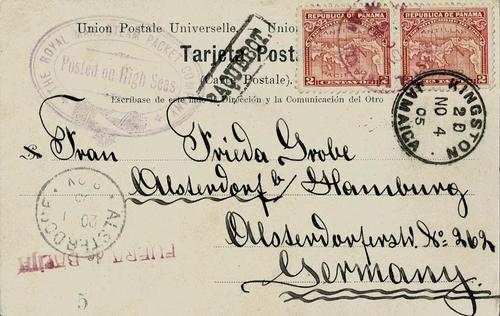 Union Postale Universelle.
Tarjeta Posta
(Carte Postale).
Escríbase de este lado la Dirección y la Comunicación del Otro
REPUBLICA DE PANAMA
2 2
REPUBLICA DE PANAMA
2 2
THE ROYAL PACKET
Posted on High Seas
PAQUEBOT
KINGSTON
2 D
NO 4
05
JAMAICA
Frau Frieda Grobe
Alsterdorf b/ Hamburg
Alsterdorferstr. No 262
Germany.
ALSTERDORF
20
FUERA de BALIJA
5